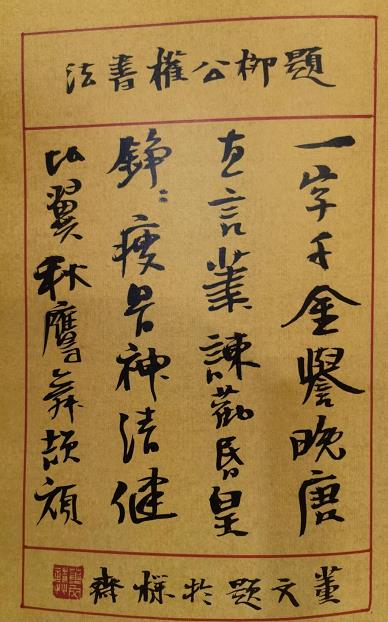 題柳公權書法
一字千金譽晚唐
直言諫勸昏皇
錚々瘦骨神清健
比翼秋鷹舞頡頏
董文題於齋